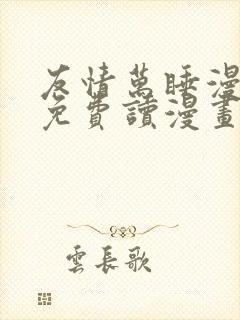 友情萬睡漫
免費讀漫畫
雲長歌